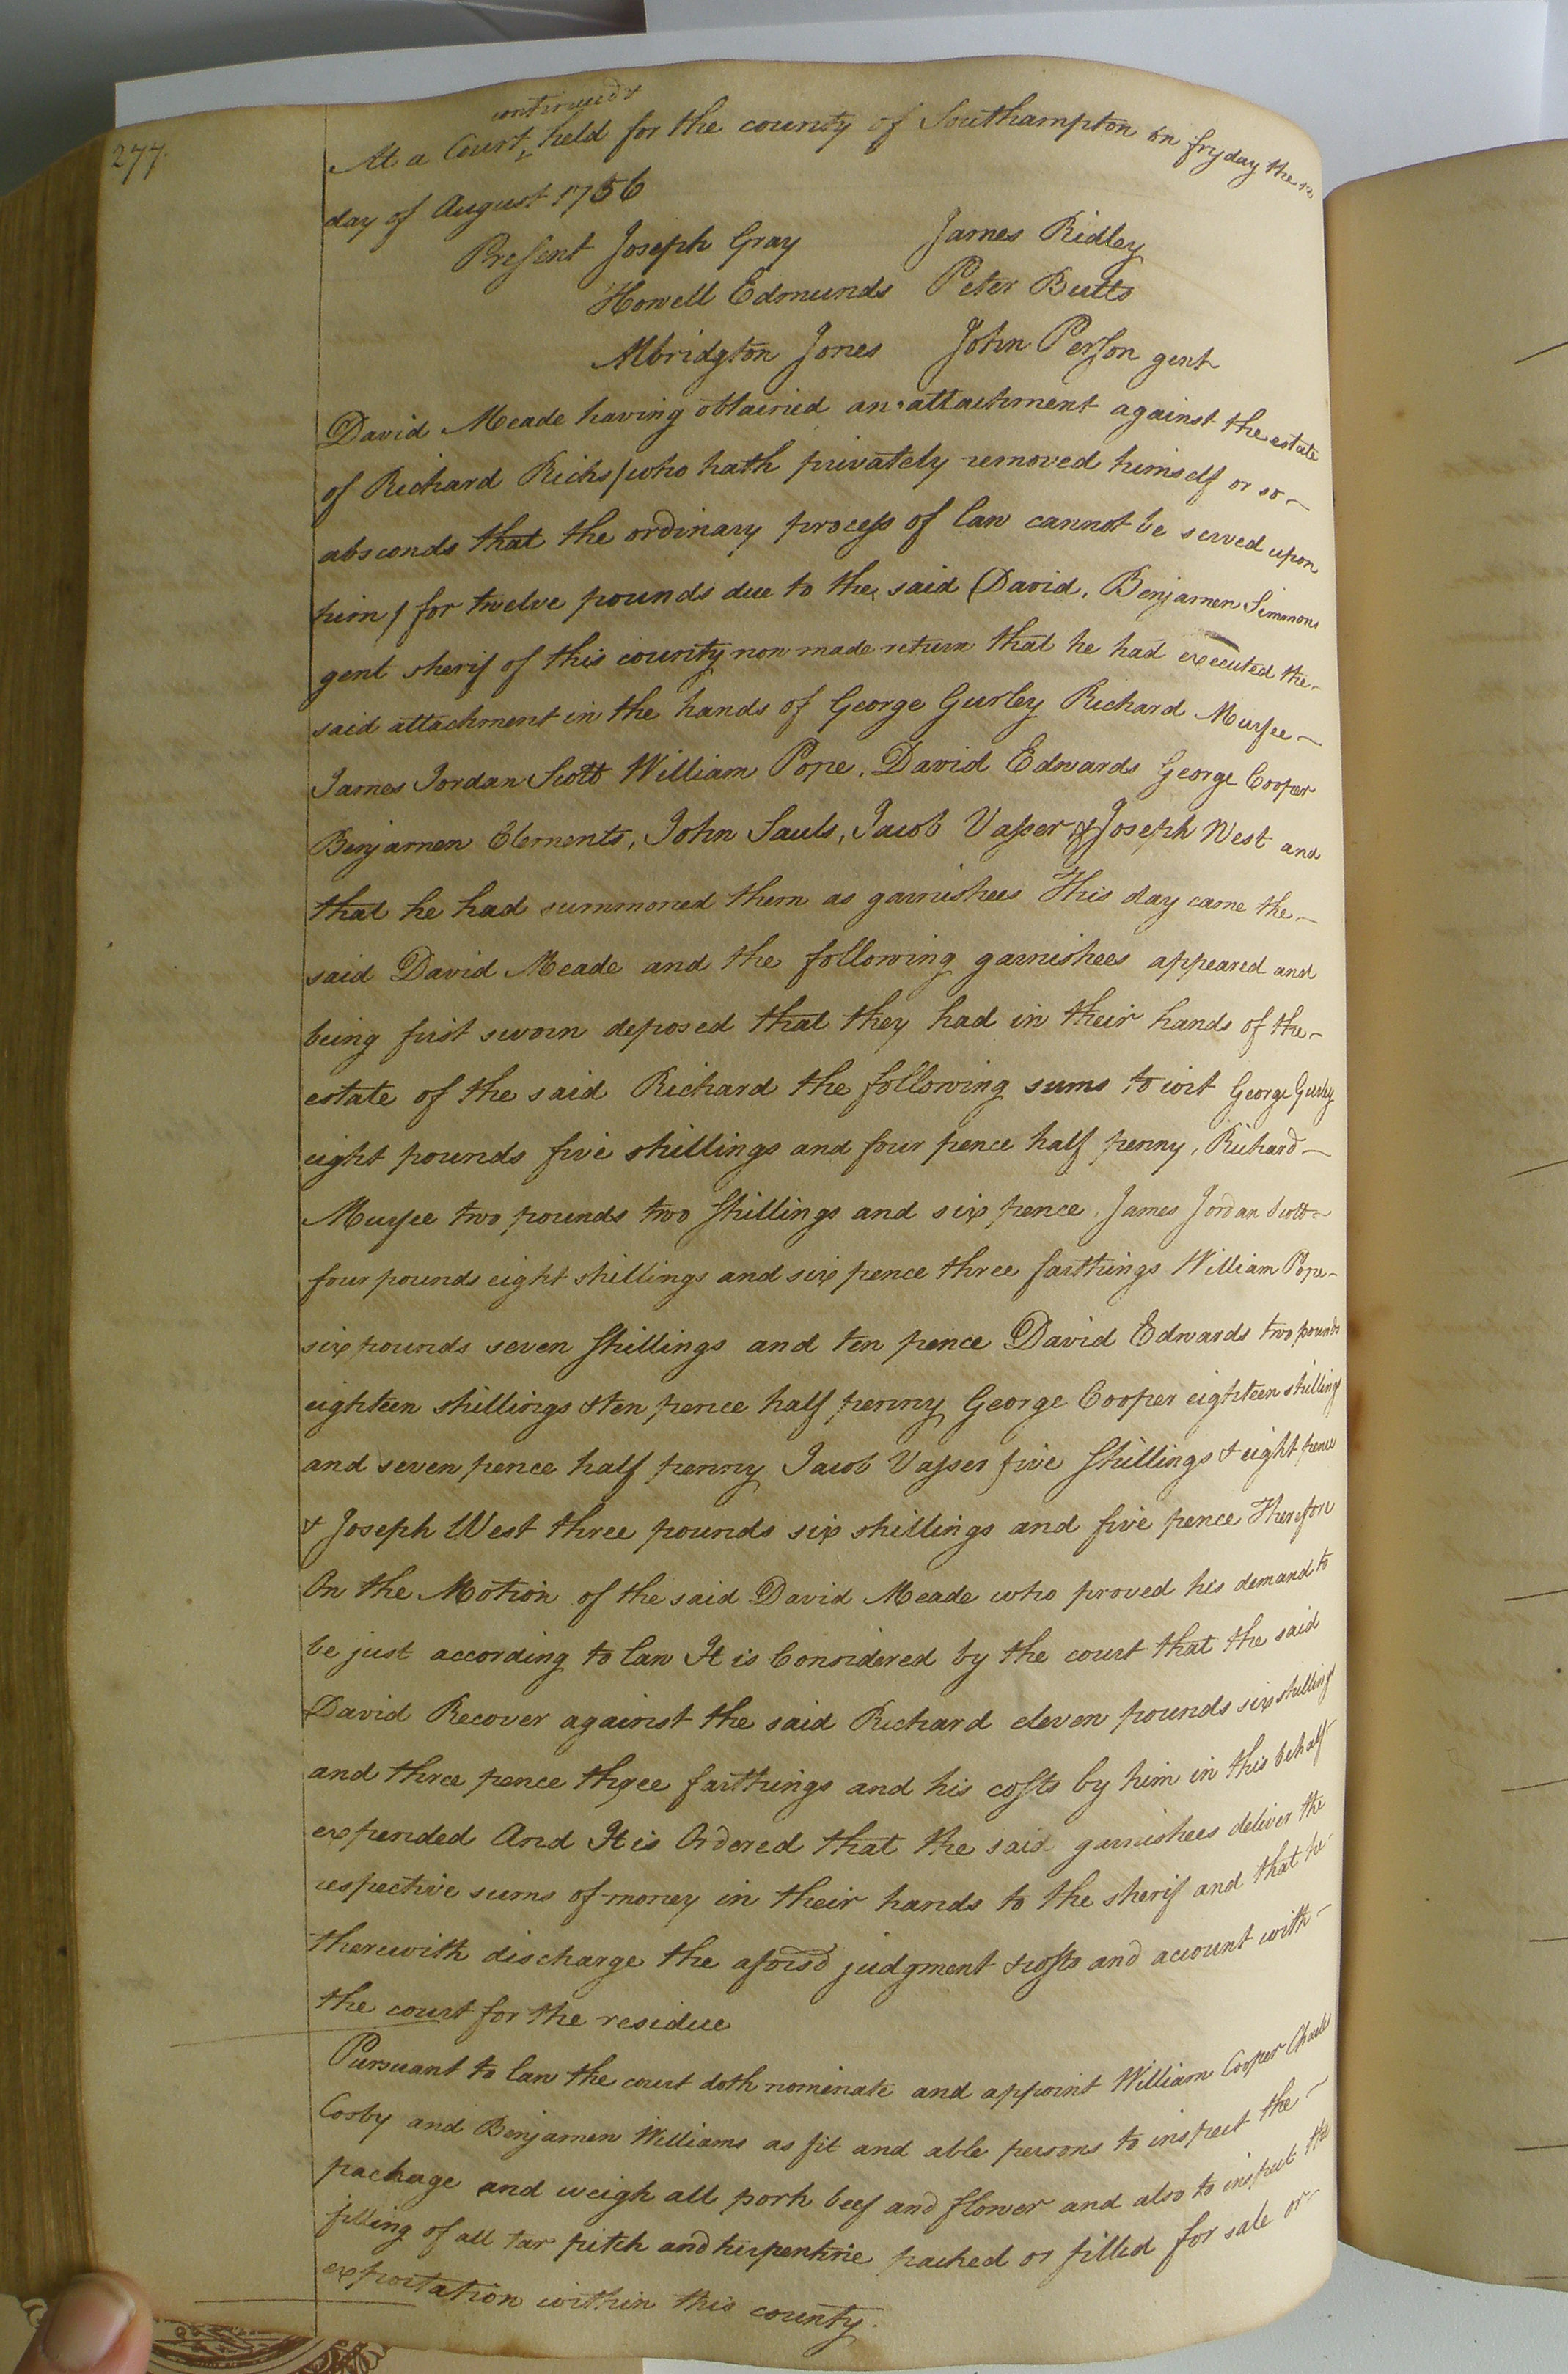 277.
continued &
At a Court held for the county of Southampton on fryday the
day of August 1756
Present Joseph Gray James Ridley
Howell Edmunds Peter Butts
Albridgton Jones John Person gent
David Meade having obtained an attachment against the estate
of Richard Ricks / who hath privately removed himself or so -
absconds that the ordinary process of law cannot be served upon
him / for twelve pounds due to the said David, Benjamen Simmons
gent sherif of this county now made return that he had executed the -
said attachment in the hands of George Gurley Richard Murfee -
James Jordan Scott William Pope, David Edwards George Cooper
Benjamen Clements, John Sauls, Jacob Vasser & Joseph West and
that he had summoned them as garnishees This day came the -
said David Meade and the following garnishees appeared and
being first sworn deposed that they had in their hands of the -
estate of the said Richard the following sums to wit George Gurley
eight pounds five shillings and four pence half penny, Richard -
Murfee two pounds two shillings and six pence, James Jordan Scott -
four pounds eight shillings and six pence three farthings William Pope -
six pounds seven shillings and ten pence David Edwards two pounds
eighteen shillings & ten pence half penny George Cooper eighteen shillings
and seven pence half penny Jacob Vasser five shillings & eight pence
& Joseph West three pounds six shillings and five pence Therefore
On the Motion of the said David Meade who proved his demand to
be just according to law It is Considered by the court that the said
David Recover against the said Richard eleven pounds six shillings
and three pence three farthings and his costs by him in this behalf
expended And It is Ordered that the said garnishees deliver the
respective sums of money in their hands to the sherif and that he
therewith discharge the aforsd judgment & costs and account with -
the court for the residue
Pursuant to law the court doth nominate and appoint William Cooper Charles
Cosby and Benjamen Williams as fit and able persons to inspect the -
package and weigh all pork beef and flower and also to inspect the
filling of all tar pitch and turpentine packed or filled for sale or -
exportation within this county.